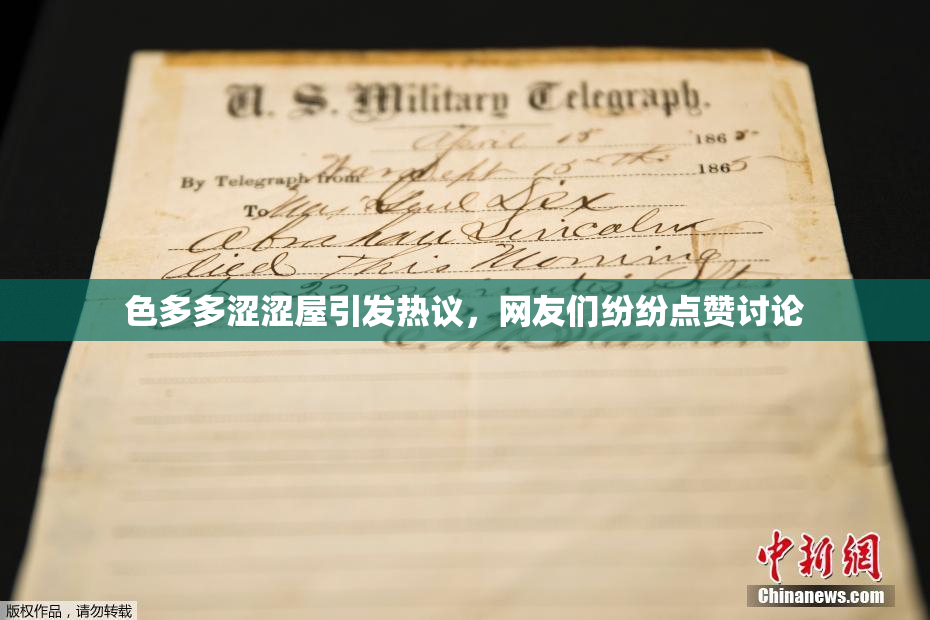 U. S. Military Telegraph.
April 15 1865
By Telegraph from War Dept 15th 1865
To Maj Genl Dix
Abraham Lincoln
died This Morning
at 22 minutes after
色多多涩涩屋引发热议，网友们纷纷点赞讨论
E. M. Stanton
中新网
Chinanews.com
版权作品，请勿转载